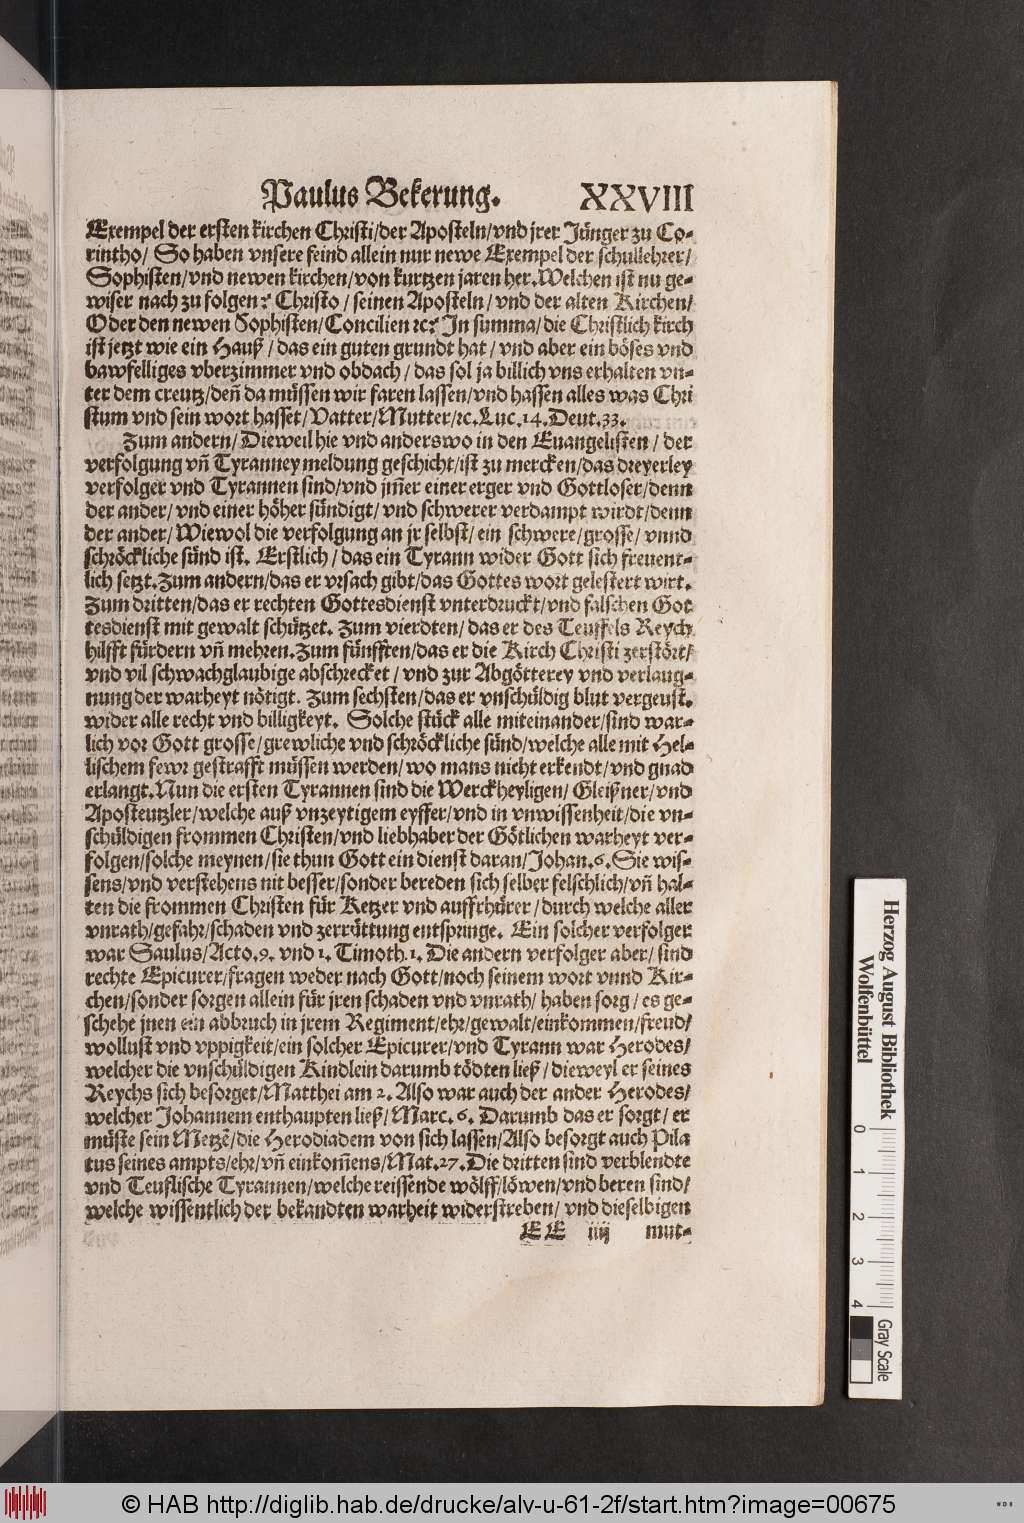 Paulus Bekerung. XXVIII
Exempel der ersten kirchen Christi/der Aposteln/vnd jrer Jünger zu Co-
rintho/ So haben vnsere feind allein nur newe Exempel der schullehrer/
Sophisten/vnd newen kirchen/von kurtzen jaren her. Welchen ist nu ge-
wiser nach zu folgen? Christo/ seinen Aposteln/ vnd der alten Kirchen/
Oder den newen Sophisten/Concilien ꝛc? In summa/die Christlich kirch
ist jetzt wie ein Hauß/ das ein guten grundt hat/ vnd aber ein böses vnd
bawfelliges vberzimmer vnd obdach/ das sol ja billich vns erhalten vn-
ter dem creutz/deñ da müssen wir faren lassen/vnd hassen alles was Chri
stum vnd sein wort hasset/Vatter/Mutter/ꝛc. Luc. 14. Deut. 33.
Zum andern/ Dieweil hie vnd anderswo in den Euangelisten/ der
verfolgung vñ Tyranney meldung geschicht/ist zu mercken/das dreyerley
verfolger vnd Tyrannen sind/vnd jm̃er einer erger vnd Gottloser/denn
der ander/vnd einer höher sündigt/ vnd schwerer verdampt wirdt/denn
der ander/Wiewol die verfolgung an jr selbst/ein schwere/grosse/ vnnd
schröckliche sünd ist. Erstlich/ das ein Tyrann wider Gott sich freuent-
lich setzt. Zum andern/das er vrsach gibt/das Gottes wort gelestert wirt.
Zum dritten/das er rechten Gottesdienst vnterdruckt/vnd falschen Got
tesdienst mit gewalt schützet. Zum vierdten/ das er des Teuffels Reych
hilfft fürdern vñ mehren. Zum fünfften/das er die Kirch Christi zerstört/
vnd vil schwachglaubige abschrecket/ vnd zur Abgötterey vnd verlaug-
nung der warheyt nötigt. Zum sechsten/das er vnschüldig blut vergeust.
wider alle recht vnd billigkeyt. Solche stück alle miteinander/sind war-
lich vor Gott grosse/grewliche vnd schröckliche sünd/welche alle mit Hel-
lischem fewr gestrafft müssen werden/wo mans nicht erkendt/vnd gnad
erlangt. Nun die ersten Tyrannen sind die Werckheyligen/Gleißner/vnd
Aposteutzler/welche auß vnzeytigem eyffer/vnd in vnwissenheit/die vn-
schüldigen frommen Christen/vnd liebhaber der Götlichen warheyt ver-
folgen/solche meynen/sie thun Gott ein dienst daran/Johan. 6. Sie wis-
sens/vnd verstehens nit besser/sonder bereden sich selber felschlich/vñ hal-
ten die frommen Christen für Ketzer vnd auffrhürer/durch welche aller
vnrath/gefahr/schaden vnd zerrüttung entspringe. Ein solcher verfolger
war Saulus/Acto. 9. vnd 1. Timoth. 1. Die andern verfolger aber/ sind
rechte Epicurer/fragen weder nach Gott/noch seinem wort vnnd Kir-
chen/sonder sorgen allein für jren schaden vnd vnrath/ haben sorg/ es ge-
schehe jnen ein abbruch in jrem Regiment/ehr/gewalt/einkommen/freud/
wollust vnd vppigkeit/ein solcher Epicurer/vnd Tyrann war Herodes/
welcher die vnschüldigen Kindlein darumb tödten ließ/ dieweyl er seines
Reychs sich besorget/Matthei am 2. Also war auch der ander Herodes/
welcher Johannem enthaupten ließ/Marc. 6. Darumb das er sorgt/ er
müste sein Metzẽ/die Herodiadem von sich lassen/Also besorgt auch Pila
tus seines ampts/ehr/vñ einkom̃ens/Mat. 27. Die dritten sind verblendte
vnd Teuflische Tyrannen/welche reissende wölff/löwen/vnd beren sind/
welche wissentlich der bekandten warheit widerstreben/ vnd dieselbigen
EE iiij mut-
Herzog August Bibliothek
Wolfenbüttel
0 1 2 3 4
Gray Scale
© HAB http://diglib.hab.de/drucke/alv-u-61-2f/start.htm?image=00675
WDB